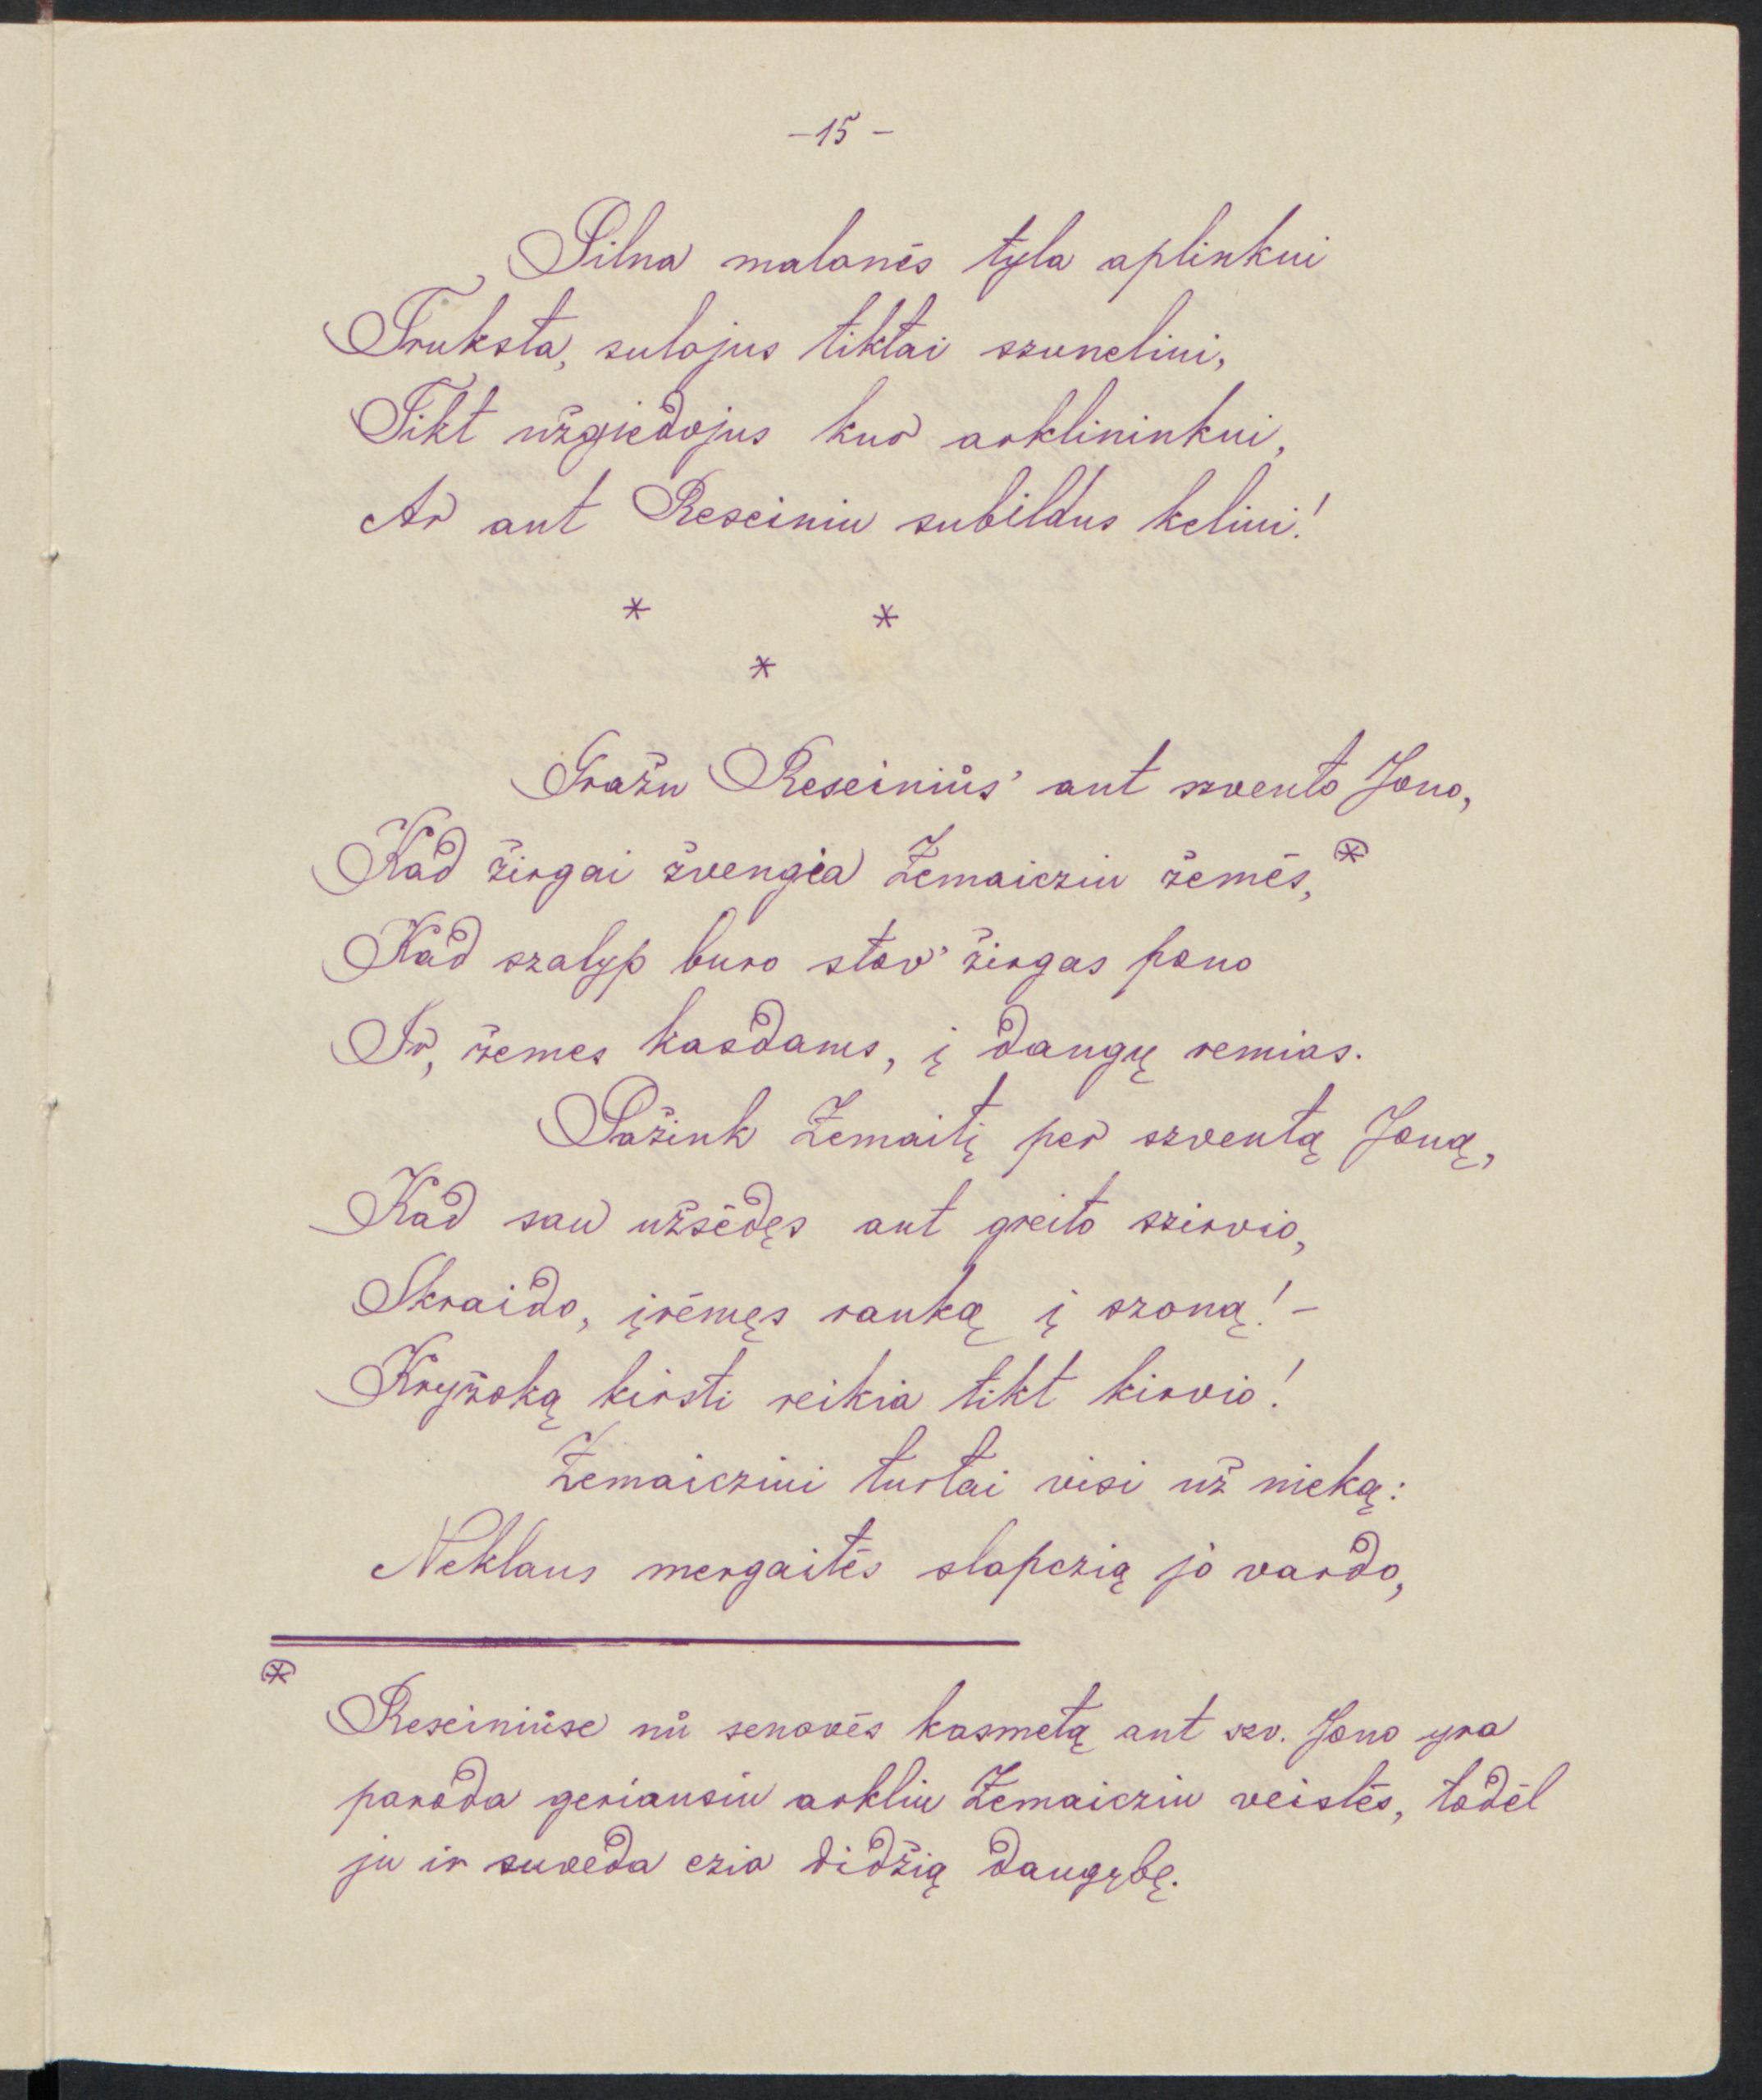 -15-
Pilna malonės tyla aplinkui
Truksta, sulojus tiktai szuneliui,
Tikt užgiedojus kur arklininkui,
Ar ant Reseiniu subildus keliui!
* *
*
Gražu Reseiniůs' ant szvento Jono,
Kad žirgai žvengia Žemaicziu žemės,*
Kad szalyp buro stov' žirgas pono
Ir, žemes kasdams, į dangų remias.
Pažink Žemaitį per szventą Joną,
Kad sau užsėdęs ant greito szirvio,
Skraido, įrėmęs ranką į szoną! -
Kryžoką kirsti reikia tikt kirvio!
Žemaicziui turtai visi už nieką:
Neklaus mergaitės slapczią jo vardo,
*
Reseiniůse nů senovės kasmetą ant szv. Jono yra
paroda geriausiu arkliu Žemaicziu veislės, todėl
ju ir suveda czia didžią daugybę.